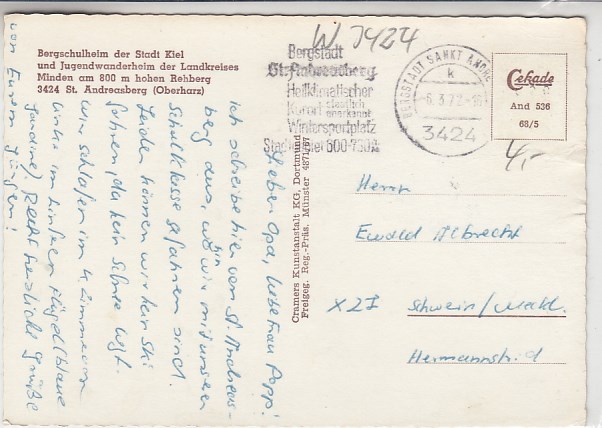 W 3424
Bergschulheim der Stadt Kiel
und Jugendwanderheim der Landkreises
Minden am 800 m hohen Rehberg
3424 St. Andreasberg (Oberharz)
Bergstadt
St. Andreasberg
Heilklimatischer
Kurort staatlich anerkannt
Wintersportplatz
BERGSTADT SANKT ANDRE
k
3424
Cekade
And 536
68/5
4,-
Lieber Opa, liebe Frau Popp!
ich schreibe hier von St. Andreas-
berg aus, wohin wir mit unserer
Schulklasse gefahren sind.
Leider können wir kein Ski
fahren, da kein Schnee liegt.
Wir schlafen im 4. Zimmer von
links im linken Flügel (blaue
Gardine). Recht herzliche Grüße
von Eurem Jürgen!
Cramers Kunstanstalt KG, Dortmund
Freigeg. Reg.-Präs. Münster 4871/67
Herrn
Ewald Albrecht
X 27 Schwerin/Meckl.
Hermannstr.